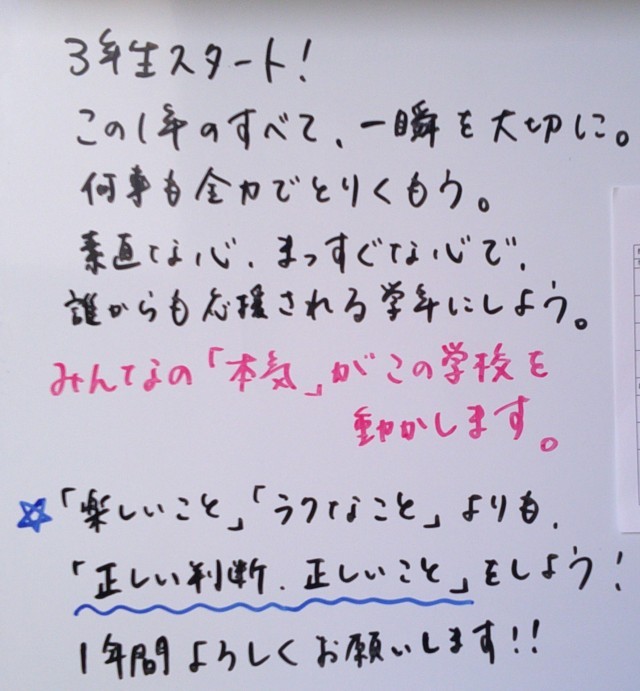 3年生スタート!
この1年のすべて、一瞬を大切に。
何事も全力でとりくもう。
素直な心、まっすぐな心で、
誰からも応援される学年にしよう。
みんなの「本気」がこの学校を
動かします。
☆「楽しいこと」「ラクなこと」よりも、
「正しい判断、正しいこと」をしよう!
1年間よろしくお願いします!!